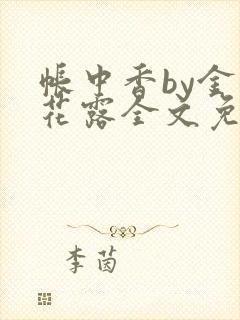 帐中香by金
花露全文免
李茵